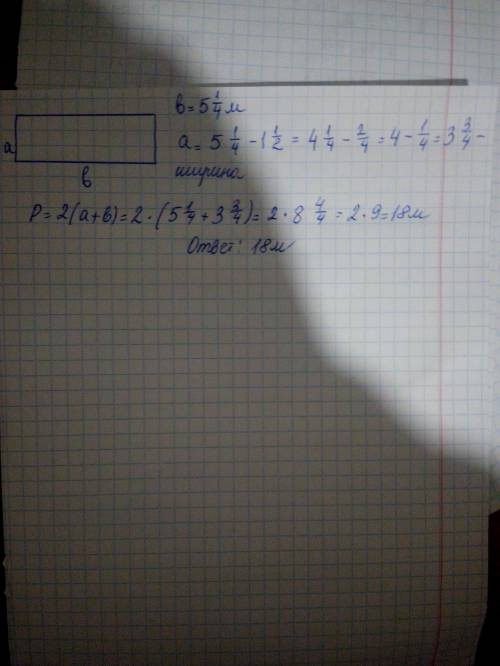 в = 5 1/4 м
а = 5 1/4 - 1 1/2 = 4 1/4 - 2/4 = 4 - 1/4 = 3 3/4 -
ширина
а
в
P = 2(а+в) = 2 · (5 1/4 + 3 3/4) = 2 · 8 4/4 = 2 · 9 = 18м
Ответ: 18м